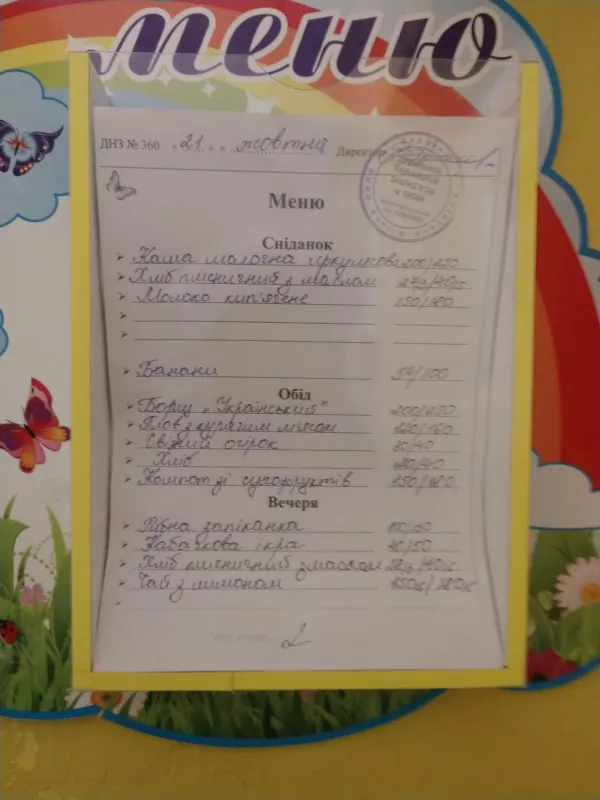 меню
ДНЗ № 360 „21„ жовтня Директор
Меню
Сніданок
Каша молочна геркулесова 200/250
Хліб пшеничний з маслом
Молоко кип'ячене 150/180
Банани /100
Обід
Борщ „Український" 200/250
Плов з курячим м'ясом 120/160
Свіжий огірок 30/40
Хліб 30/40
Компот зі сухофруктів 150/180
Вечеря
Рибна запіканка
Кабачкова ікра 40/50
Хліб пшеничний з маслом
Чай з лимоном
2